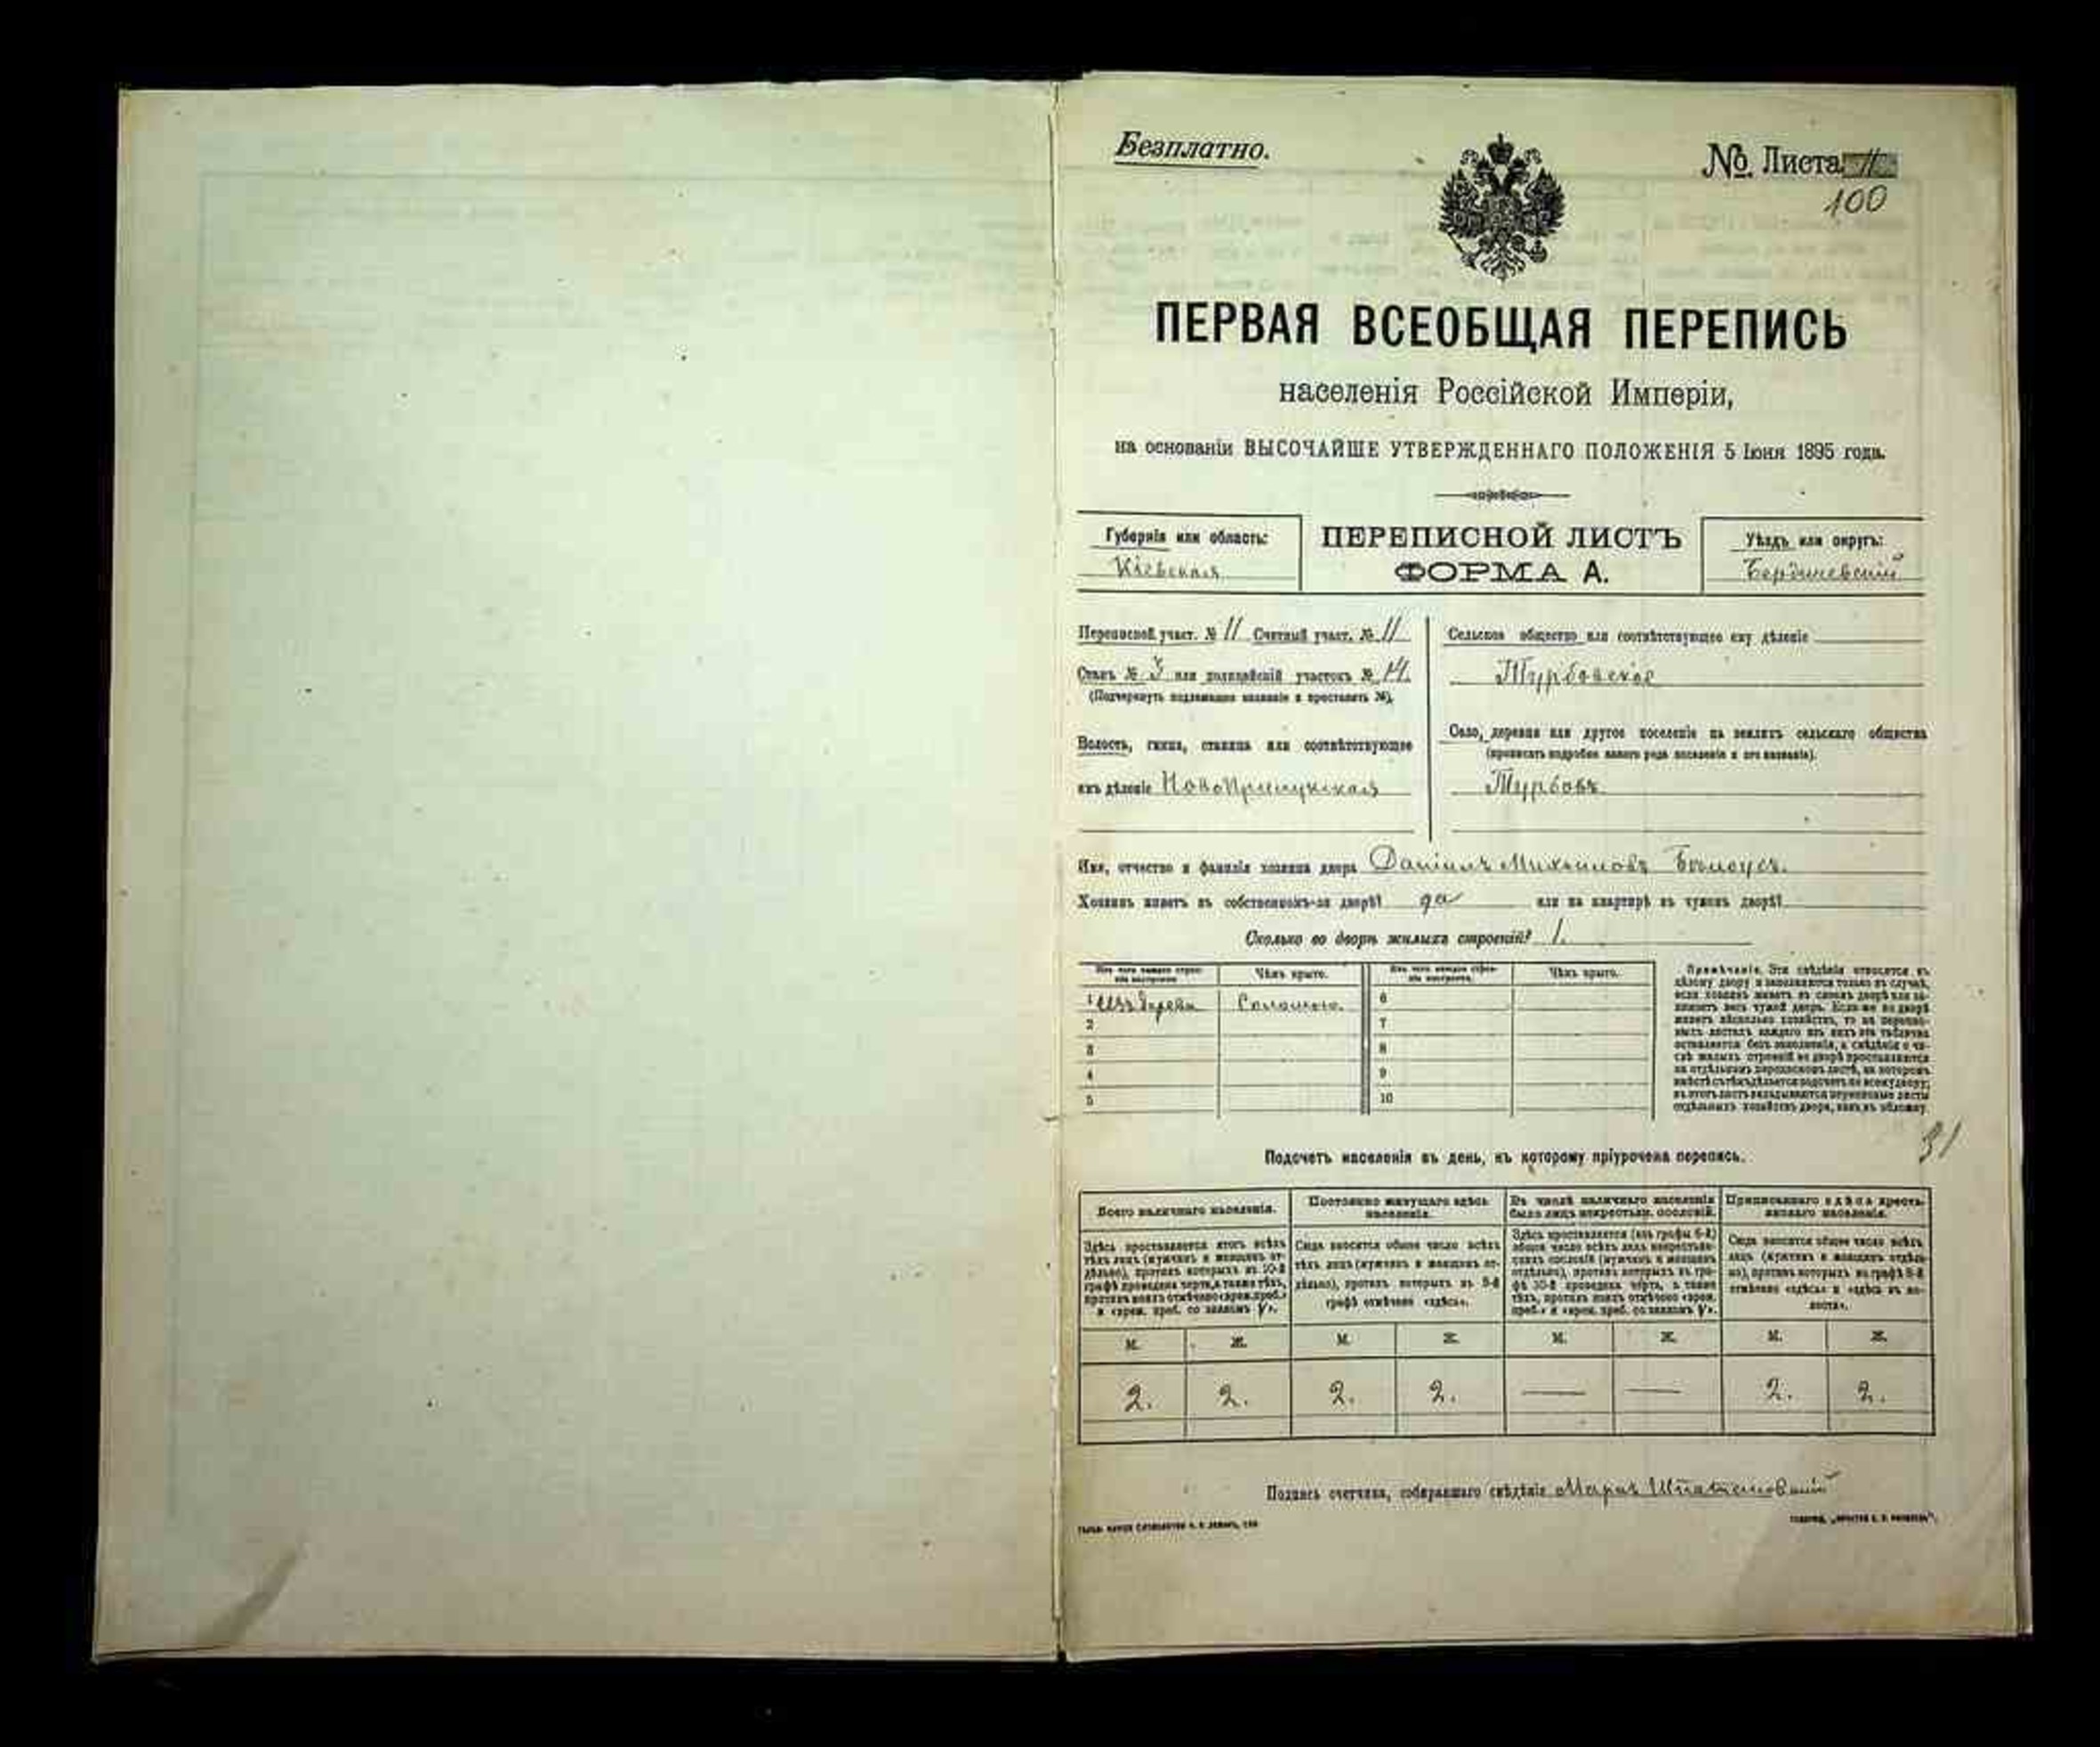 Безплатно.
№ Листа 11
100
ПЕРВАЯ ВСЕОБЩАЯ ПЕРЕПИСЬ
населенія Россійской Имперіи,
на основаніи ВЫСОЧАЙШЕ УТВЕРЖДЕННАГО ПОЛОЖЕНІЯ 5 Іюня 1895 года.
Губернія или область:
Кіевская
ПЕРЕПИСНОЙ ЛИСТЪ
ФОРМА А.
Уѣздъ или округъ:
Бердичевскій
Переписной участ. № 11 Счетный участ. № 11
Станъ № 3 или полицейскій участокъ № 14.
(Подчеркнуть подлежащее названіе и проставить №).
Волость, гмина, станица или соотвѣтствующее
имъ дѣленіе НовоПрилукская
Сельское общество или соотвѣтствующее ему дѣленіе
Турбовское
Село, деревня или другое поселеніе на земляхъ сельскаго общества
(прописать подробно какого рода поселеніе и его названіе).
Турбовъ
Имя, отчество и фамилія хозяина двора Даніилъ Михаиловъ Бѣлоусъ.
Хозяинъ живетъ въ собственномъ-ли дворѣ? да или на квартирѣ въ чужомъ дворѣ?
Сколько во дворѣ жилыхъ строеній? 1.
Изъ чего каждое строеніе построено. Чѣмъ крыто.
Изъ чего каждое строеніе построено. Чѣмъ крыто.
1 Изъ дерева Соломою.
2
3
4
5
6
7
8
9
10
Примѣчаніе. Эти свѣдѣнія относятся къ
цѣлому двору и заполняются только въ случаѣ,
если хозяинъ живетъ въ своемъ дворѣ или за-
нимаетъ весь чужой дворъ. Если же во дворѣ
живетъ нѣсколько хозяйствъ, то на перепис-
ныхъ листахъ каждаго изъ нихъ эта табличка
оставляется безъ заполненія, а свѣдѣнія о чи-
слѣ жилыхъ строеній во дворѣ проставляются
на отдѣльномъ переписномъ листѣ, на которомъ
вмѣстѣ съ тѣмъ дѣлается подсчетъ по всему двору;
въ этотъ листъ вкладываются переписные листы
отдѣльныхъ хозяйствъ двора, какъ въ обложку.
31
Подсчетъ населенія въ день, къ которому пріурочена перепись.
Всего наличнаго населенія.
Здѣсь проставляется итогъ всѣхъ
тѣхъ лицъ (мужчинъ и женщинъ от-
дѣльно), противъ которыхъ въ 10-й
графѣ проведена черта, а также тѣхъ,
противъ коихъ отмѣчено «врем. преб.»
и «врем. преб. со знакомъ V».
Постоянно живущаго здѣсь
населенія.
Сюда вносится общее число всѣхъ
тѣхъ лицъ (мужчинъ и женщинъ от-
дѣльно), противъ которыхъ въ 9-й
графѣ отмѣчено «здѣсь».
Въ числѣ наличнаго населенія
было лицъ некрестьян. сословій.
Здѣсь проставляется (изъ графы 6-й)
общее число всѣхъ лицъ некрестьян-
скихъ сословій (мужчинъ и женщинъ
отдѣльно), противъ которыхъ въ гра-
фѣ 10-й проведена черта, а также
тѣхъ, противъ коихъ отмѣчено «врем.
преб.» и «врем. преб. со знакомъ V».
Приписаннаго здѣсь кресть-
янскаго населенія.
Сюда вносится общее число всѣхъ
лицъ (мужчинъ и женщинъ отдѣль-
но), противъ которыхъ въ графѣ 8-й
отмѣчено «здѣсь» и «здѣсь въ во-
лости».
М. Ж. М. Ж. М. Ж. М. Ж.
2. 2. 2. 2. — — 2. 2.
Подпись счетчика, собиравшаго свѣдѣнія Маркъ